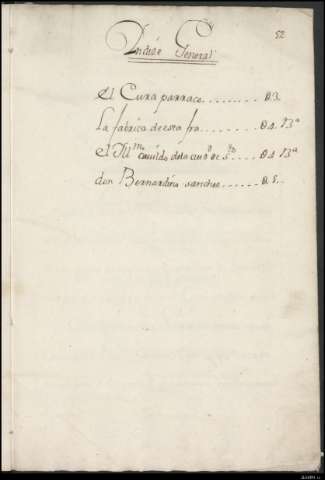 52
Yndize General
El Cura parraco........ 03.
La fabrica de esta fra....... 04. B.ª
El Ill.mo cavildo dela ciu.d de S.go..... 04 B.ª
don Bernardino sanchez...... 05..